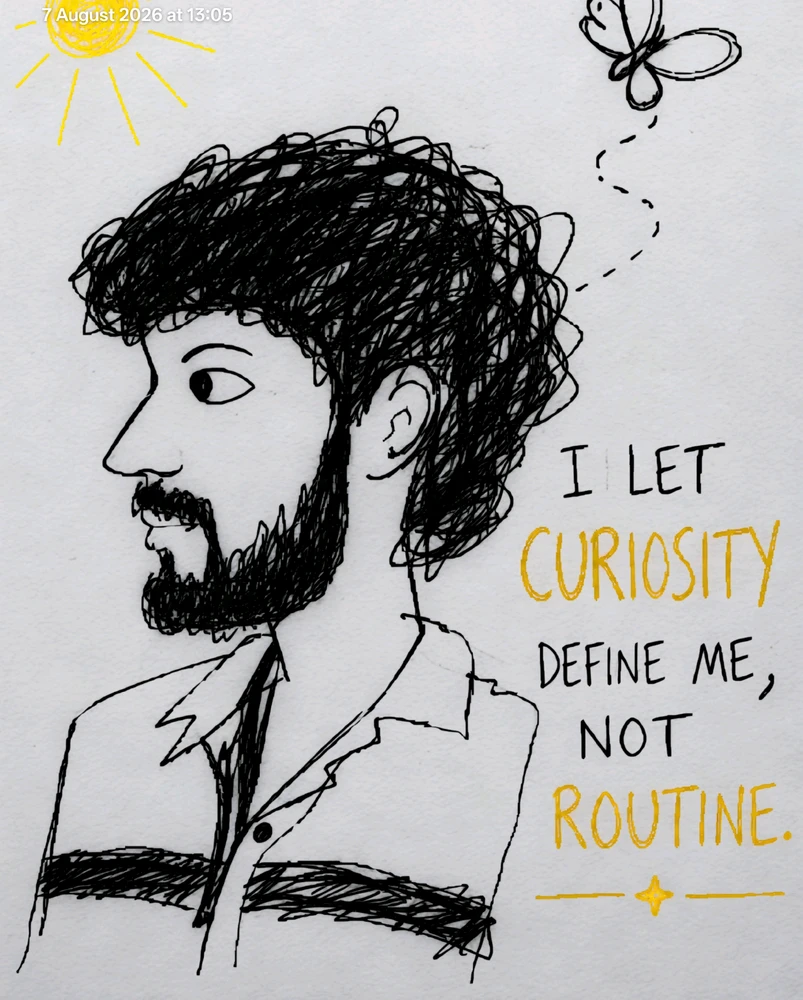 7 August 2026 at 13:05
I LET
CURIOSITY
DEFINE ME,
NOT
ROUTINE.